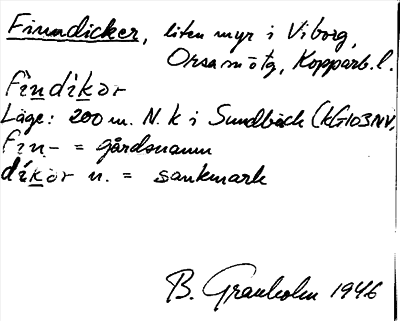 Finndicker, liten myr i Viborg,
Orsa mötg, Kopparb. l.
fìndíkər
Läge: 200 m. N. k i Sundbäck (kG103NV,
fin- = gårdsnamn
díkər n. = sankmark
B. Granholm 1946